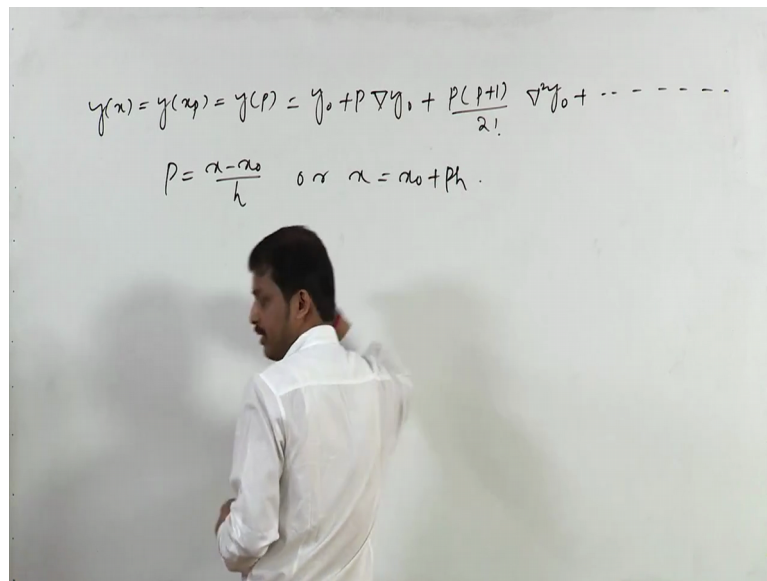 y(x) = y(xp) = y(p) = y₀ + p ∇y₀ + p(p+1)/2! ∇²y₀ + -------
p = x-x₀/h or x = x₀ + ph.